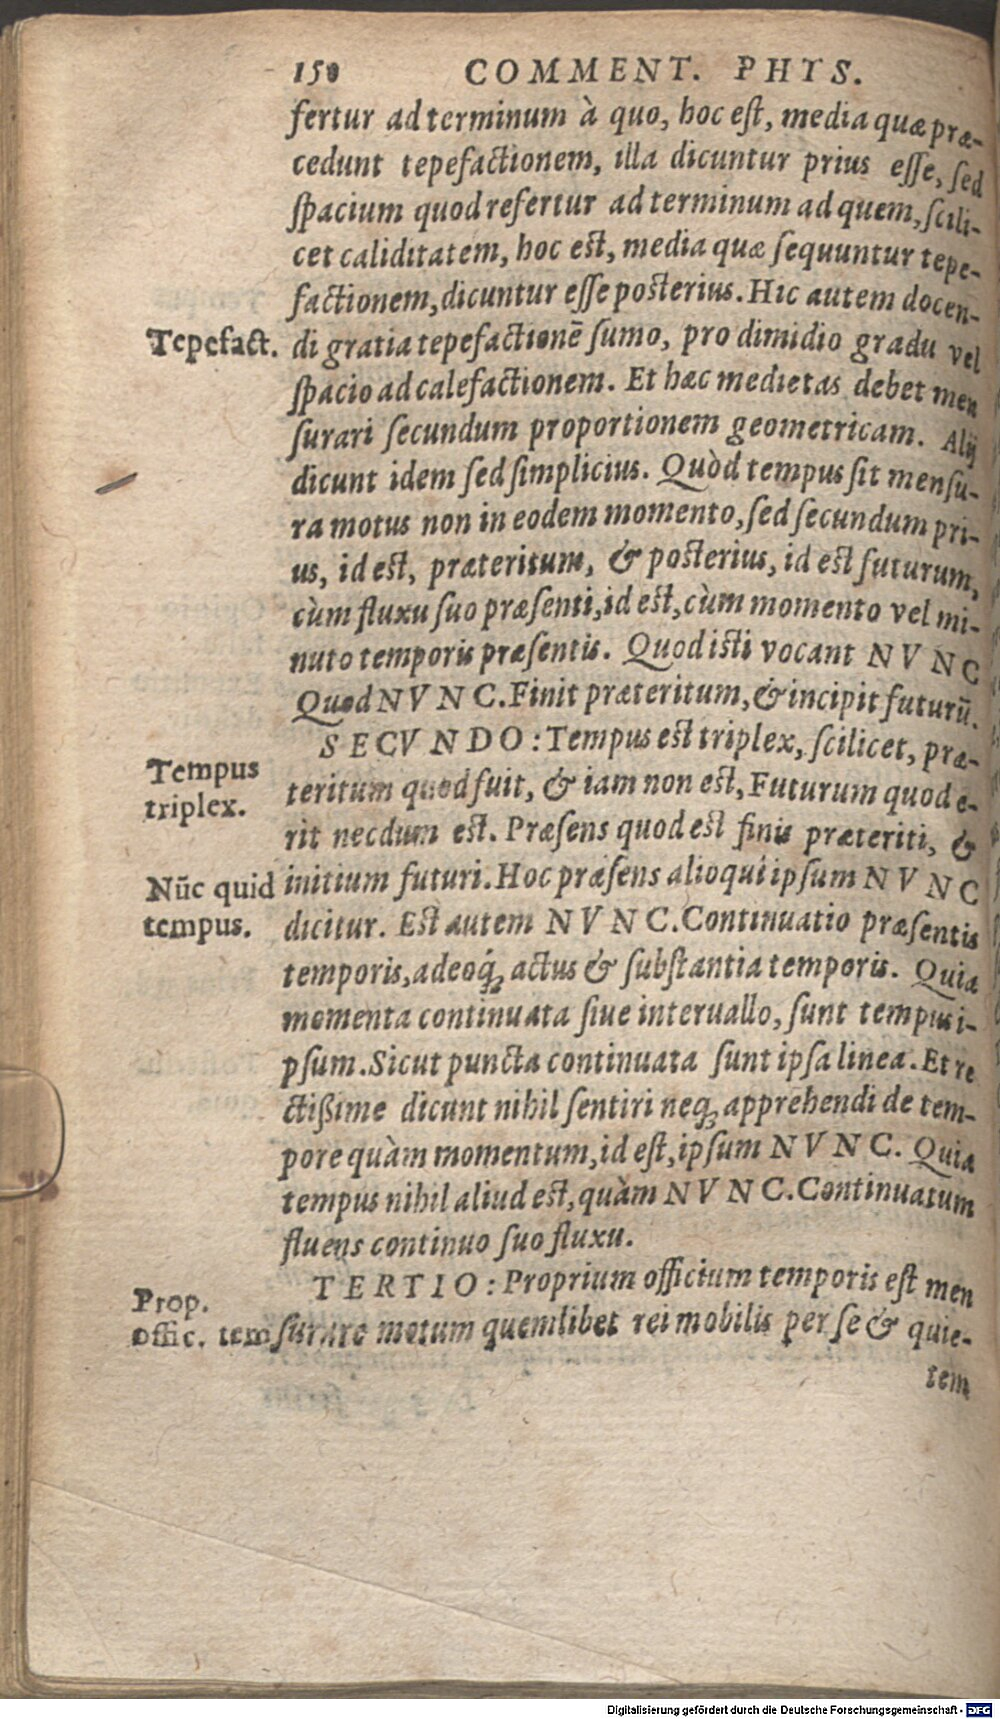 150 COMMENT. PHYS.
fertur ad terminum à quo, hoc est, media quæ præ-
cedunt tepefactionem, illa dicuntur prius esse, sed
spacium quod refertur ad terminum ad quem, scili-
cet caliditatem, hoc est, media quæ sequuntur tepe-
factionem, dicuntur esse posterius. Hic autem docen-
Tepefact. di gratia tepefactionē sumo, pro dimidio gradu vel
spacio ad calefactionem. Et hæc medietas debet men
surari secundum proportionem geometricam. Alij
dicunt idem sed simplicius. Quòd tempus sit mensu-
ra motus non in eodem momento, sed secundum pri-
us, id est, præteritum, & posterius, id est futurum,
cùm fluxu suo præsenti, id est, cùm momento vel mi-
nuto temporis præsentis. Quod isti vocant NVNC
Quod NVNC. Finit præteritum, & incipit futurū.
SECVNDO: Tempus est triplex, scilicet, præ-
Tempus
triplex.
teritum quod fuit, & iam non est, Futurum quod e-
rit necdum est. Præsens quod est finis præteriti, &
Nūc quid
tempus.
initium futuri. Hoc præsens alioqui ipsum NVNC
dicitur. Est autem NVNC. Continuatio præsentis
temporis, adeoq́; actus & substantia temporis. Quia
momenta continuata siue interuallo, sunt tempus i-
psum. Sicut puncta continuata sunt ipsa linea. Et re
ctißime dicunt nihil sentiri neq; apprehendi de tem-
pore quàm momentum, id est, ipsum NVNC. Quia
tempus nihil aliud est, quàm NVNC. Continuatum
fluens continuo suo fluxu.
TERTIO: Proprium officium temporis est men
Prop.
offic. tem
surare motum quemlibet rei mobilis per se & quie-
tem
Digitalisierung gefördert durch die Deutsche Forschungsgemeinschaft - DFG